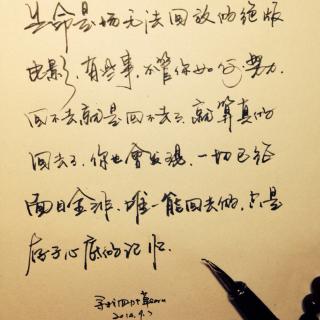 生命是场无法回放的绝版
电影,有些事,不管你如何努力,
回不去就是回不去了,就算真的
回去了,你也會发现,一切已经
面目全非,唯一能回去的,只是
存于心底的记忆.